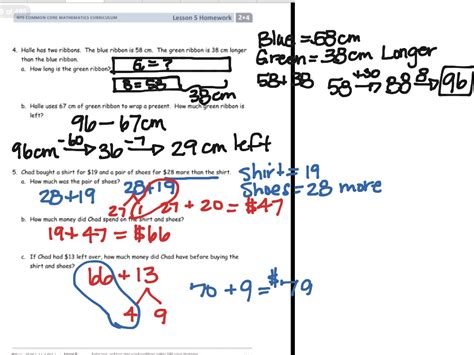 NYS COMMON CORE MATHEMATICS CURRICULUM
Lesson 5 Homework 2•4
Blue = 58cm
Green = 38cm Longer
58 + 38
58 +30→ 88 8→ 96
4. Halle has two ribbons. The blue ribbon is 58 cm. The green ribbon is 38 cm longer
than the blue ribbon.
a. How long is the green ribbon?
G = ?
B = 58
38cm
b. Halle uses 67 cm of green ribbon to wrap a present. How much green ribbon is
left?
96 - 67cm
96cm -60→ 36 -7→ 29 cm left
5. Chad bought a shirt for $19 and a pair of shoes for $28 more than the shirt.
Shirt = 19
Shoes = 28 more
a. How much was the pair of shoes?
28 + 19
28+19
27 1
27 + 20 = $47
b. How much money did Chad spend on the shirt and shoes?
19 + 47 = $66
c. If Chad had $13 left over, how much money did Chad have before buying the
shirt and shoes?
66 + 13
4 9
70 + 9 = $79